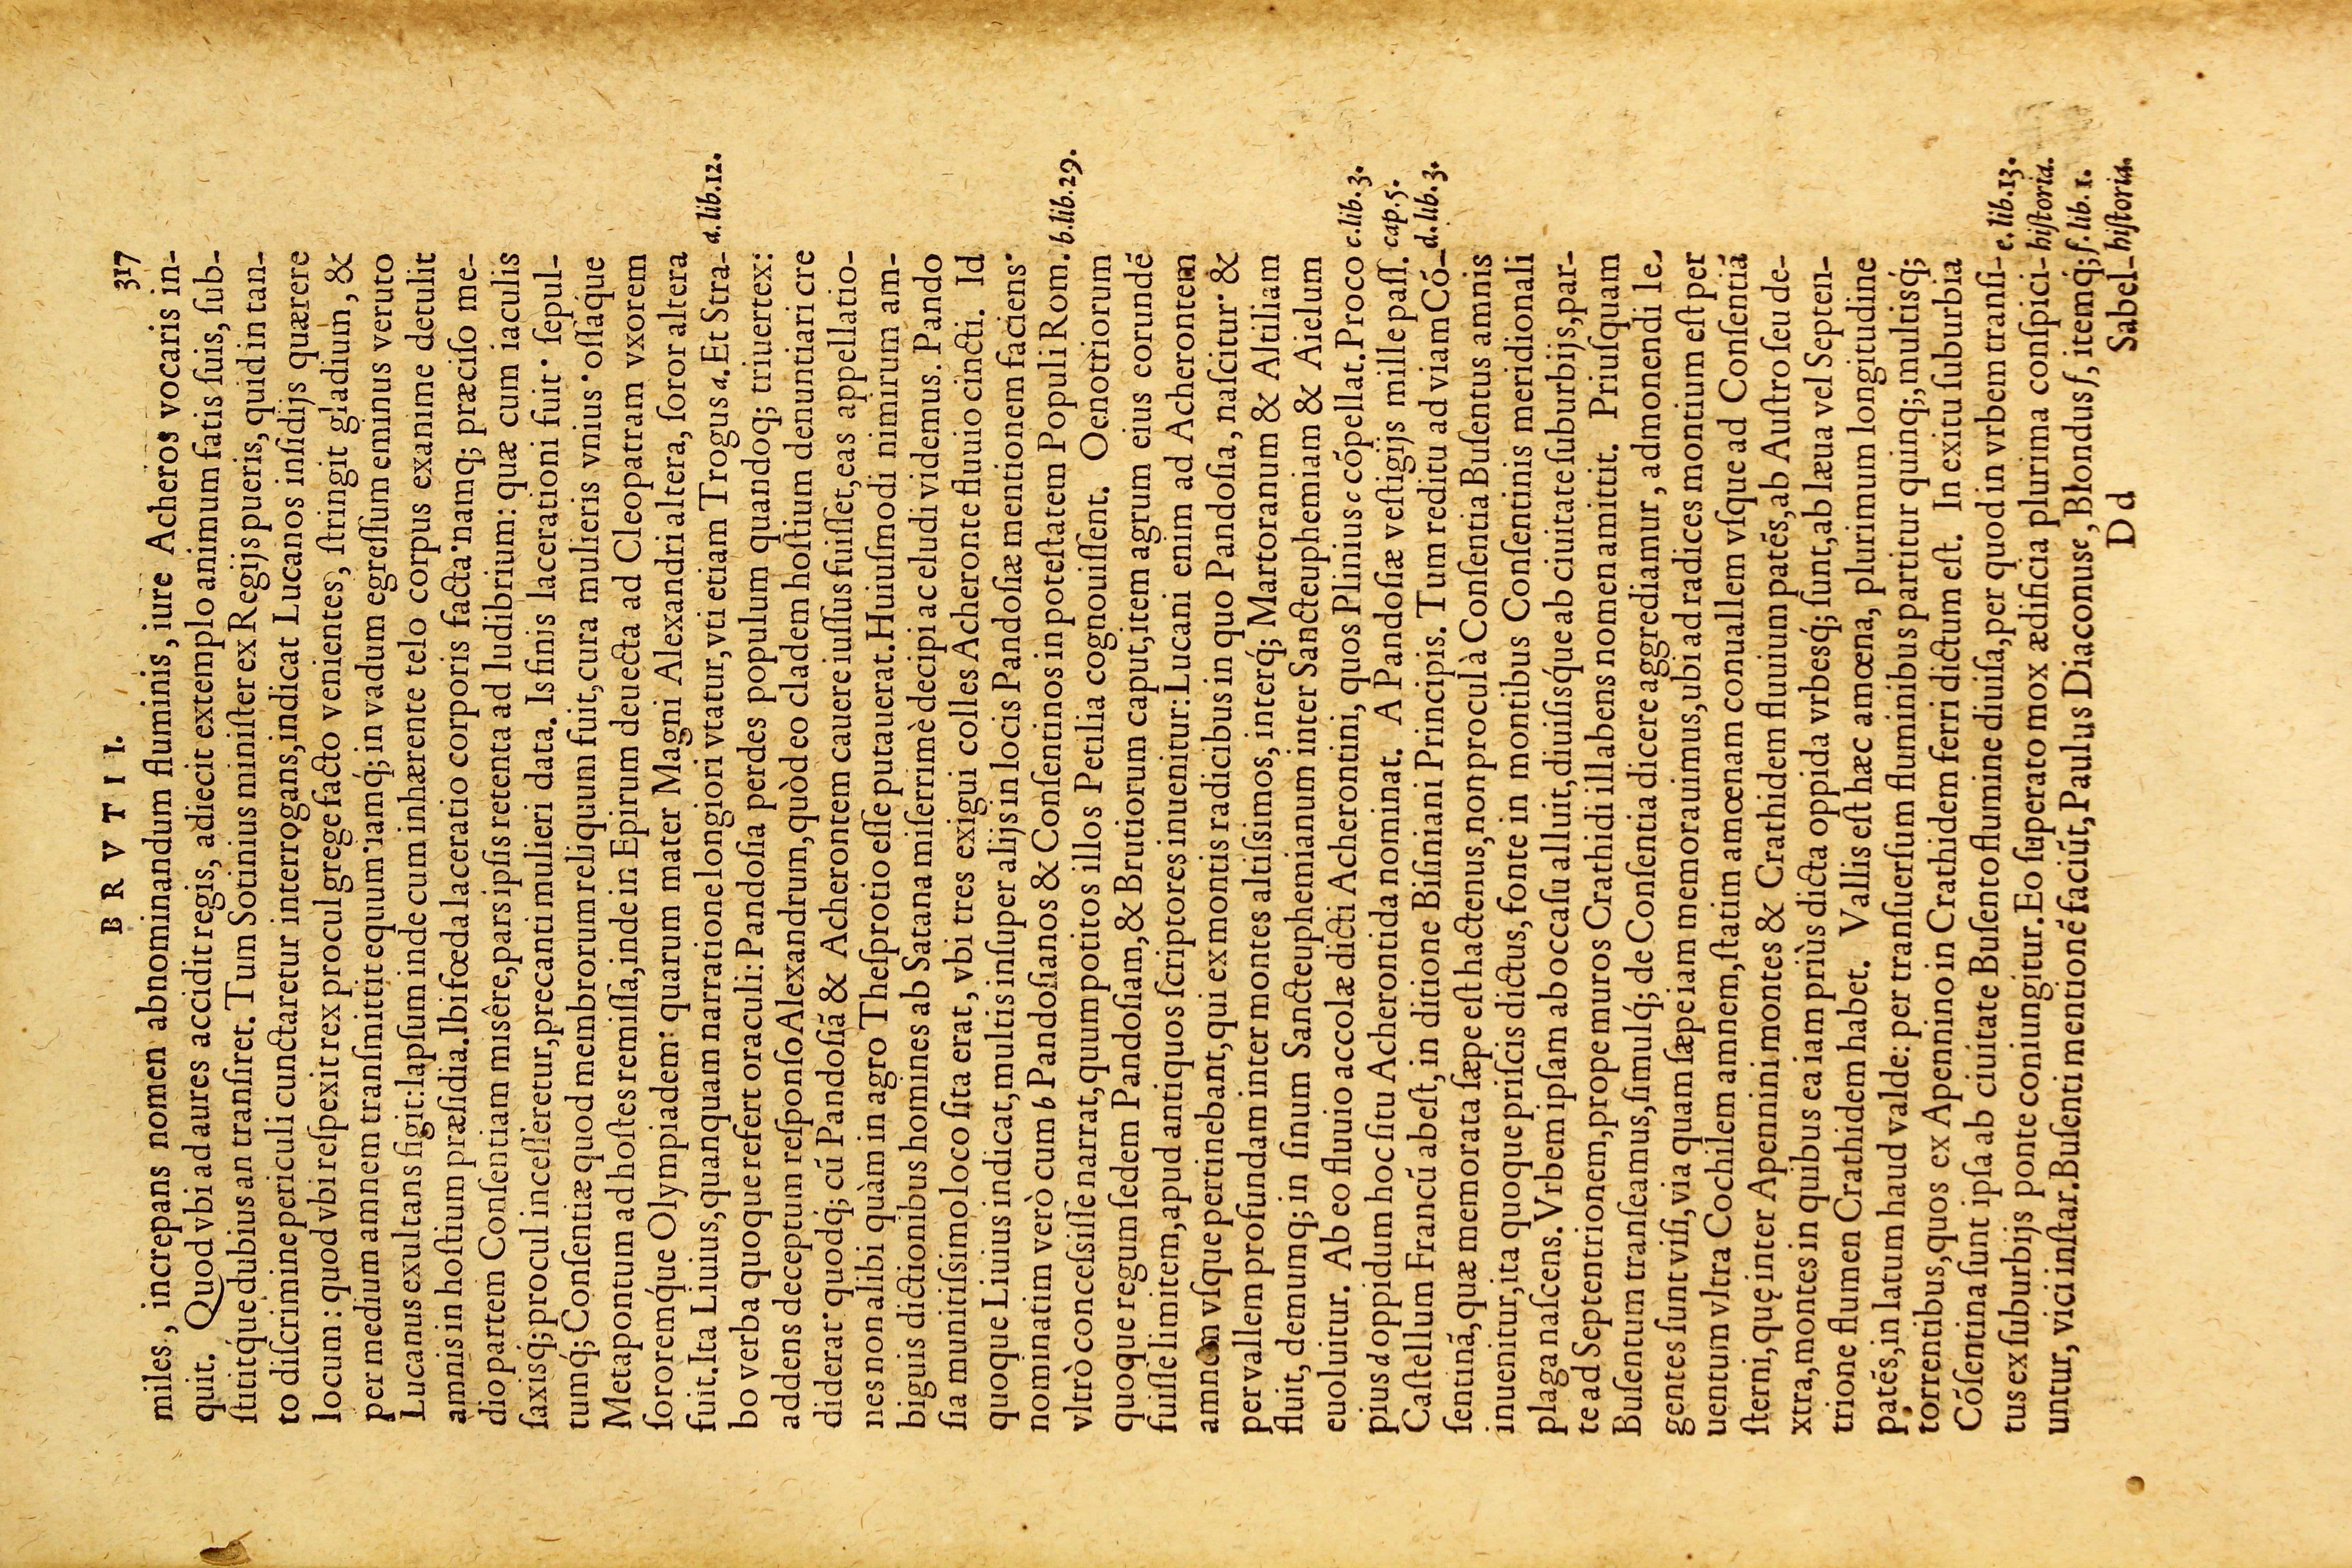 BRVTII. 317
miles, increpans nomen abnominandum fluminis, iure Acheros vocaris in-
quit. Quod vbi ad aures accidit regis, adiecit extemplo animum fatis ſuis, ſub-
ſtititq́ue dubius an tranſiret. Tum Sotinius miniſter ex Regijs pueris, quid in tan-
to diſcrimine periculi cunctaretur interrogans, indicat Lucanos inſidijs quærere
locum: quod vbi reſpexit rex procul grege facto venientes, ſtringit gladium, &
per medium amnem tranſmittit equum: iamq́; in vadum egreſſum eminus veruto
Lucanus exultans figit: lapſum inde cum inhærente telo corpus exanime detulit
amnis in hoſtium præſidia. Ibi fœda laceratio corporis facta: namq; præciſo me-
dio partem Conſentiam misêre, pars ipſis retenta ad ludibrium: quæ cum iaculis
ſaxisq́; procul inceſſeretur, precanti mulieri data. Is finis lacerationi fuit: ſepul-
tumq́; Conſentiæ quod membrorum reliquum fuit, cura mulieris vnius: oſſaq́ue
Metapontum ad hoſtes remiſſa, inde in Epirum deuecta ad Cleopatram vxorem
ſororemq́ue Olympiadem: quarum mater Magni Alexandri altera, ſoror altera
fuit. Ita Liuius, quanquam narratione longiori vtatur, vti etiam Trogus a. Et Stra- a. lib. 12.
bo verba quoque refert oraculi: Pandoſia perdes populum quandoq; triuertex:
addens deceptum reſponſo Alexandrum, quòd eo cladem hoſtium denuntiari cre
diderat: quodq́; cū Pandoſiā & Acherontem cauere iuſſus fuiſſet, eas appellatio-
nes non alibi quàm in agro Theſprotio eſſe putauerat. Huiuſmodi nimirum am-
biguis dictionibus homines ab Satana miſerimè decipi ac eludi videmus. Pando
ſia munitiſsimo loco ſita erat, vbi tres exigui colles Acheronte fluuio cincti. Id
quoque Liuius indicat, multis inſuper alijs in locis Pandoſiæ mentionem faciens:
nominatim verò cum b Pandoſianos & Conſentinos in poteſtatem Populi Rom. b. lib. 29.
vltrò conceſsiſſe narrat, quum potitos illos Petilia cognouiſſent. Oenotriorum
quoque regum ſedem Pandoſiam, & Brutiorum caput, item agrum eius eorundē
fuiſſe limitem, apud antiquos ſcriptores inuenitur: Lucani enim ad Acherontem
amnem vſque pertinebant, qui ex montis radicibus in quo Pandoſia, naſcitur: &
per vallem profundam inter montes altiſsimos, interq́; Martoranum & Altiliam
fluit, demumq; in ſinum Sancteuphemianum inter Sancteuphemiam & Aielum
euoluitur. Ab eo fluuio accolæ dicti Acherontini, quos Plinius c cōpellat. Proco c. lib. 3.
pius d oppidum hoc ſitu Acherontida nominat. A Pandoſiæ veſtigijs mille paſſ. cap. 5.
Caſtellum Francū abeſt, in ditione Biſiniani Principis. Tum reditu ad viam Cō- d. lib. 3.
ſentinā, quæ memorata ſæpe eſt hactenus, non procul à Conſentia Buſentus amnis
inuenitur, ita quoque priſcis dictus, fonte in montibus Conſentinis meridionali
plaga naſcens. Vrbem ipſam ab occaſu alluit, diuiſisq́ue ab ciuitate ſuburbijs, par-
te ad Septentrionem, prope muros Crathidi illabens nomen amittit. Priuſquam
Buſentum tranſeamus, ſimulq́; de Conſentia dicere aggrediamur, admonendi le-
gentes ſunt viſi, via quam ſæpe iam memorauimus, ubi ad radices montium eſt per
uentum vltra Cochilem amnem, ſtatim amœnam conuallem vſque ad Conſentiā
ſterni, quę inter Apennini montes & Crathidem fluuium patēs, ab Auſtro ſeu de-
xtra, montes in quibus ea iam priùs dicta oppida vrbesq́; ſunt, ab læua vel Septen-
trione flumen Crathidem habet. Vallis eſt hæc amœna, plurimum longitudine
patēs, in latum haud valde: per tranſuerſum fluminibus partitur quinq;, multisq́;
torrentibus, quos ex Apennino in Crathidem ferri dictum eſt. In exitu ſuburbia
Cōſentina ſunt ipſa ab ciuitate Buſento flumine diuiſa, per quod in vrbem tranſi- e. lib. 13.
tus ex ſuburbijs ponte coniungitur. Eo ſuperato mox ædificia plurima conſpici- hiſtoria.
untur, vici inſtar. Buſenti mentionē faciūt, Paulus Diaconus e, Blondus f, itemq́; f. lib. 1.
Dd Sabel- hiſtoria.